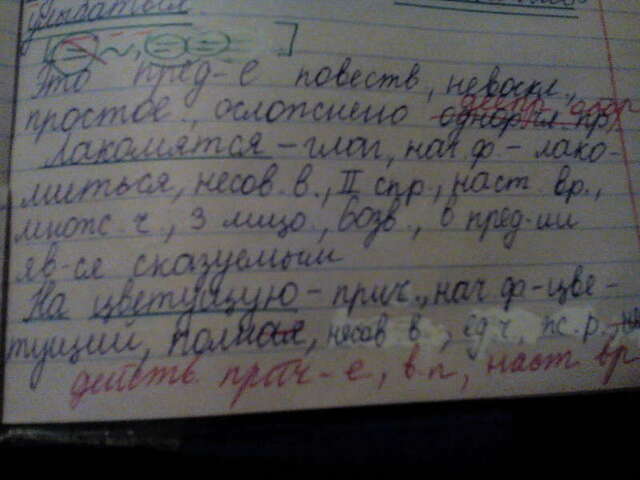 улыбаться
Это пред-е повеств, невоскл.,
простое, осложнено однор. чл. пр.
Лакомятся - глаг, нач ф - лако-
миться, несов. в., II спр, наст вр.,
множ. ч., 3 лицо, возв., в пред-ии
яв-ся сказуемым
На цветущую - прич., нач ф - цве-
тущий, полная, несов в., ед ч, ж. р.,
действ. прич-е, в.п, наст вр